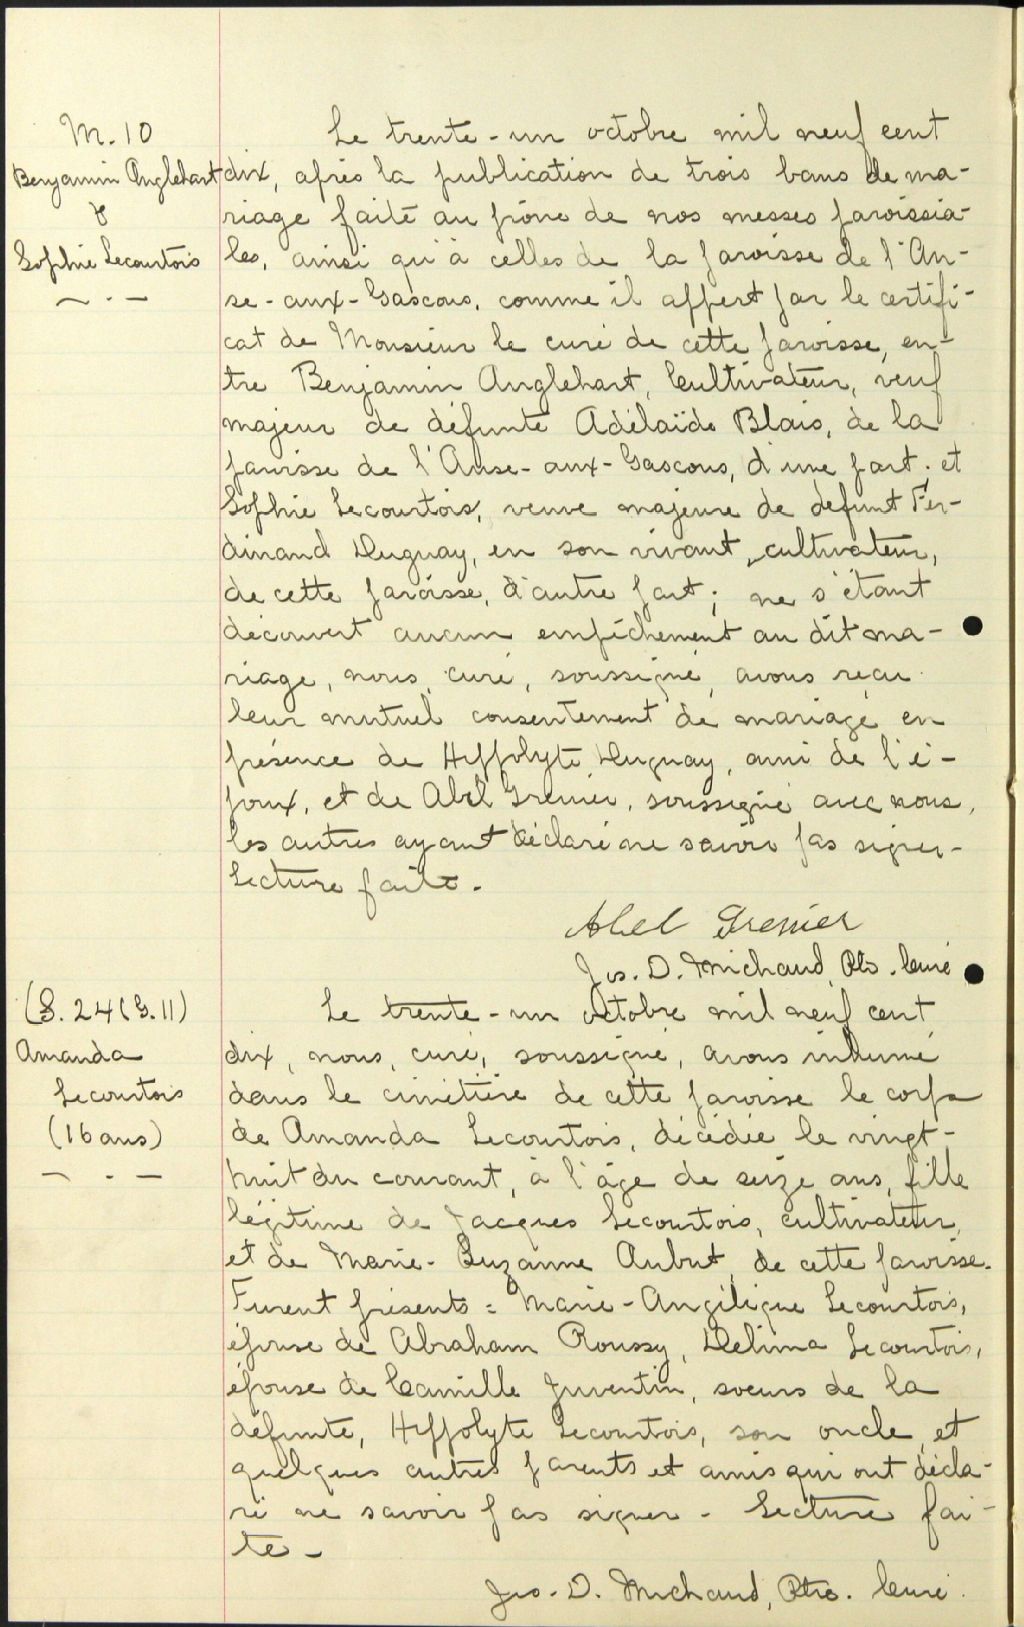 M. 10
Benjamin Anglehart
&
Sophie Lecourtois
Le trente-un octobre mil neuf cent
dix, après la publication de trois bans de ma-
riage faite au prône de nos messes paroissia-
les, ainsi qu'à celles de la paroisse de l'An-
se-aux-Gascons, comme il appert par le certifi-
cat de Monsieur le curé de cette paroisse, en-
tre Benjamin Anglehart, Cultivateur, veuf
majeur de défunte Adélaïde Blais, de la
paroisse de l'Anse-aux-Gascons, d'une part; et
Sophie Lecourtois, veuve majeure de défunt Fer-
dinand Duguay, en son vivant, cultivateur,
de cette paroisse, d'autre part; ne s'étant
découvert aucun empêchement au dit ma-
riage, nous, curé, soussigné, avons reçu
leur mutuel consentement de mariage en
présence de Hippolyte Duguay, ami de l'é-
poux, et de Abel Grenier, soussigné avec nous,
les autres ayant déclaré ne savoir pas signer-
Lecture faite.
Abel Grenier
Jos. D. Michaud, Ptre. Curé
(S. 24 (G. 11)
Amanda
Lecourtois
(16 ans)
Le trente-un octobre mil neuf cent
dix, nous, curé, soussigné, avons inhumé
dans le cimetière de cette paroisse le corps
de Amanda Lecourtois, décédée le vingt-
huit du courant, à l'âge de seize ans, fille
légitime de Jacques Lecourtois, cultivateur,
et de Marie-Suzanne Aubut, de cette paroisse.
Furent présents: Marie-Angélique Lecourtois,
épouse de Abraham Roussy, Delima Lecourtois,
épouse de Camille Juventin, soeurs de la
défunte, Hippolyte Lecourtois, son oncle, et
quelques autres parents et amis qui ont décla-
ré ne savoir pas signer - Lecture fai-
te -
Jos. D. Michaud, Ptre. Curé.